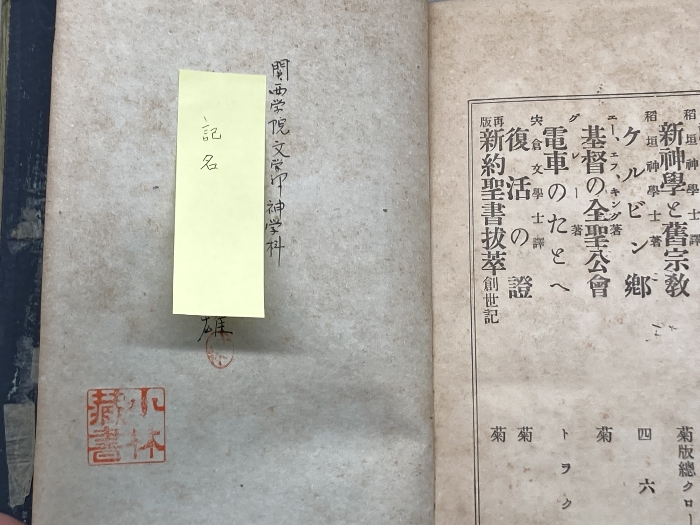 稻垣神學士譯
新神學と舊宗教
菊版總クロー
稻垣神學士著
ケルビン鄕
四六
エー、エフ、キング著
基督の全聖公會
菊
グレー著
電車のたとへ
トヲク
宍倉文學士譯
復活の證
菊
再版
新約聖書拔萃創世記
菊
関西学院文学部神学科
記名
雄
小林
藏書